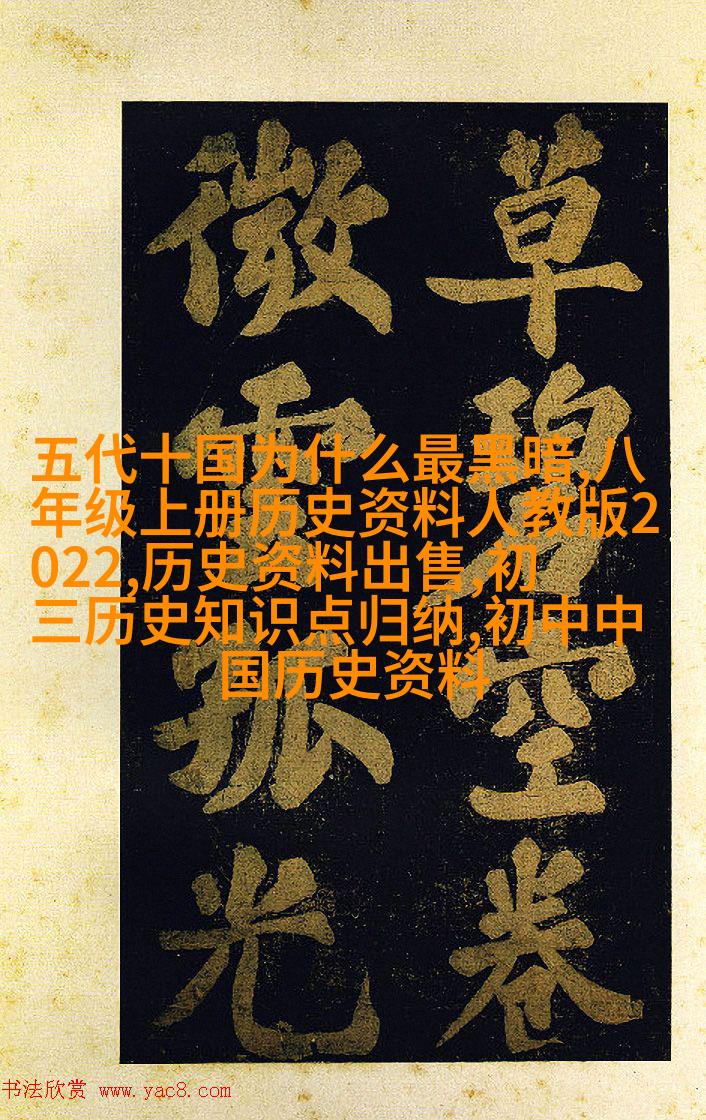 草碧空卷
微雲孤光
五代十国为什么最黑暗,八
年级上册历史资料人教版2
022,历史资料出售,初
三历史知识点归纳,初中中
国历史资料
书法欣赏 www.yac8.com